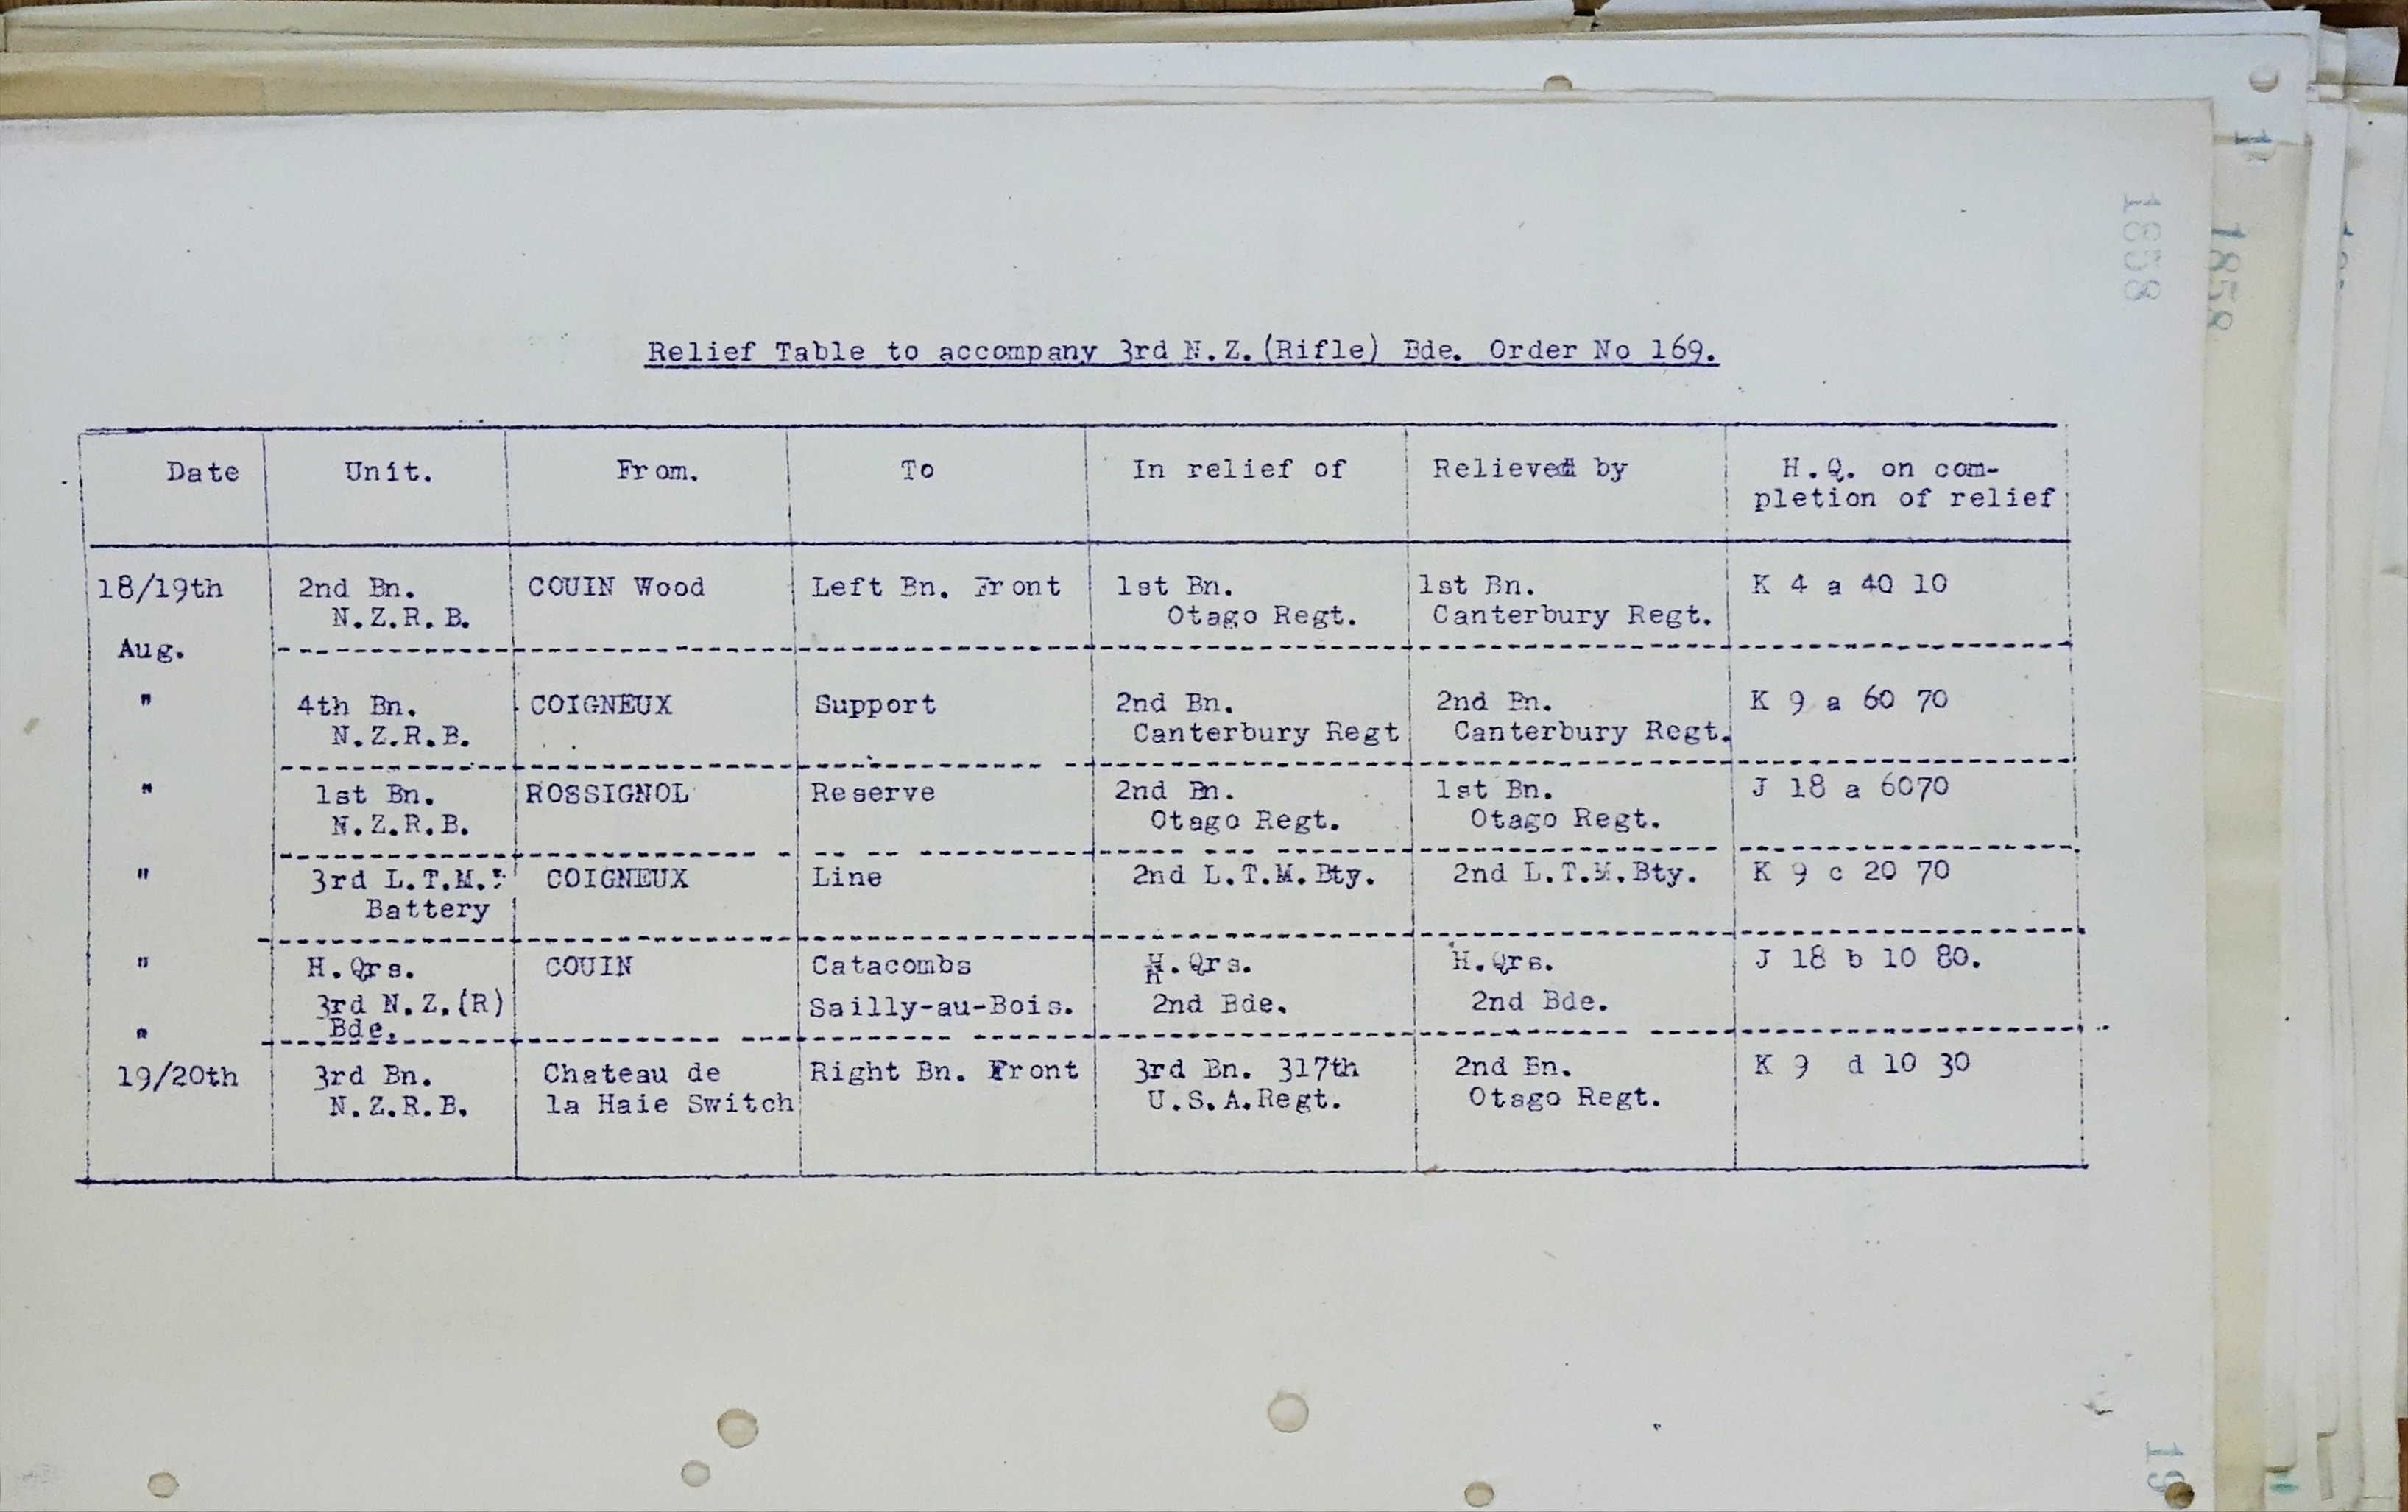 1858
1858
Relief Table to accompany 3rd N.Z.(Rifle) Bde. Order No 169.
Date Unit. From. To In relief of Relieved by H.Q. on com-
pletion of relief
18/19th 2nd Bn. COUIN Wood Left Bn. Front 1st Bn. 1st Bn. K 4 a 40 10
N.Z.R.B. Otago Regt. Canterbury Regt.
Aug.
" 4th Bn. COIGNEUX Support 2nd Bn. 2nd Bn. K 9 a 60 70
N.Z.R.B. Canterbury Regt Canterbury Regt.
" 1st Bn. ROSSIGNOL Reserve 2nd Bn. 1st Bn. J 18 a 6070
N.Z.R.B. Otago Regt. Otago Regt.
" 3rd L.T.M. COIGNEUX Line 2nd L.T.M.Bty. 2nd L.T.M.Bty. K 9 c 20 70
Battery
" H.Qrs. COUIN Catacombs H.Qrs. H.Qrs. J 18 b 10 80.
3rd N.Z.(R) Sailly-au-Bois. 2nd Bde. 2nd Bde.
" Bde.
19/20th 3rd Bn. Chateau de Right Bn. Front 3rd Bn. 317th 2nd Bn. K 9 d 10 30
N.Z.R.B. la Haie Switch U.S.A.Regt. Otago Regt.
19